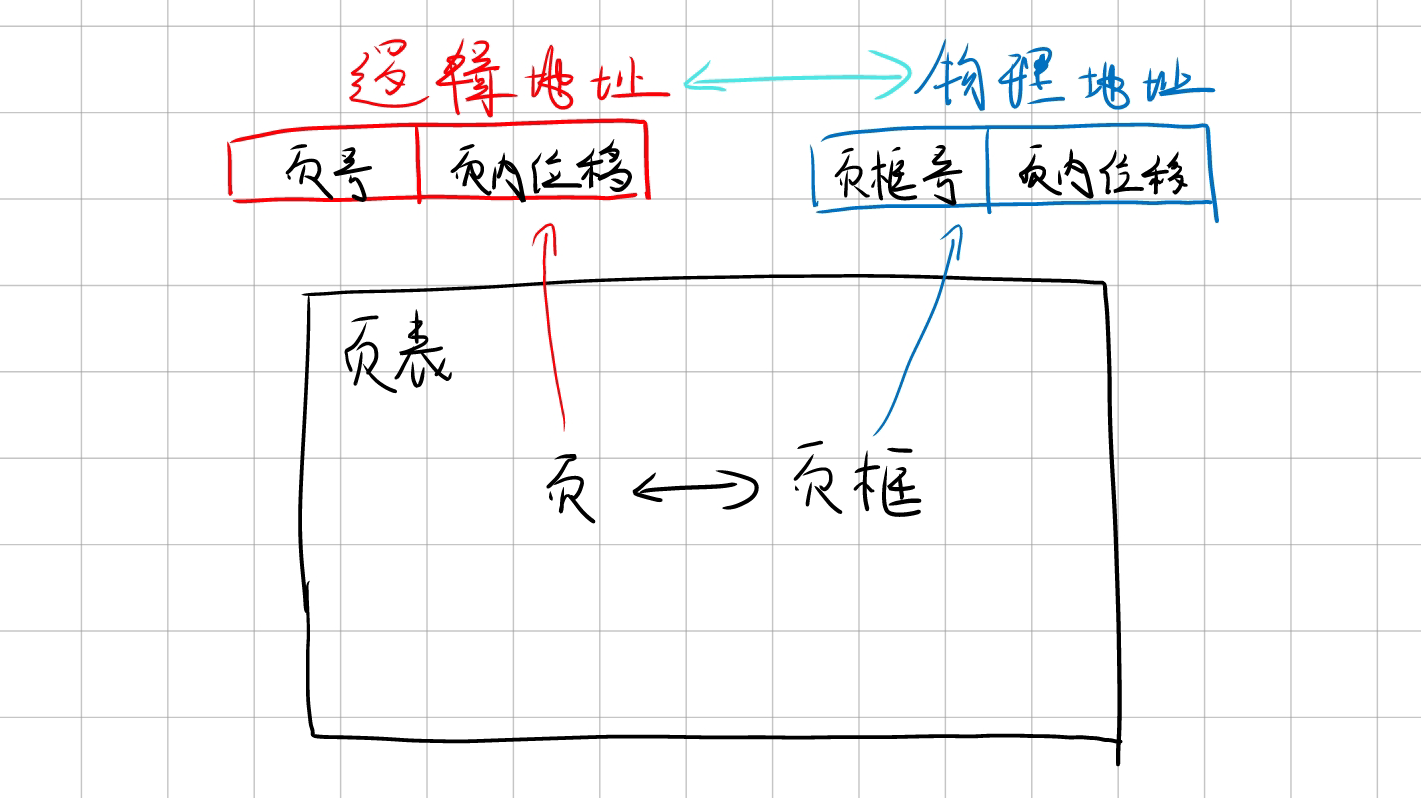 逻辑地址 物理地址
页号 页内位移 页框号 页内位移
页表
页 页框